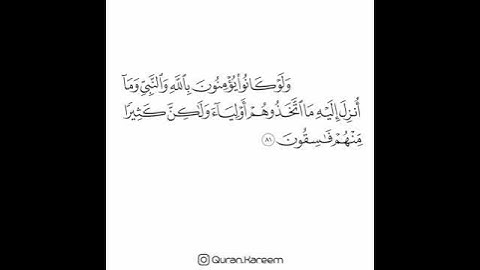 وَلَوْ كَانُوا۟ يُؤْمِنُونَ بِٱللَّهِ وَٱلنَّبِىِّ وَمَآ
أُنزِلَ إِلَيْهِ مَا ٱتَّخَذُوهُمْ أَوْلِيَآءَ وَلَـٰكِنَّ كَثِيرًا
مِّنْهُمْ فَـٰسِقُونَ ٨١
Quran.Kareem